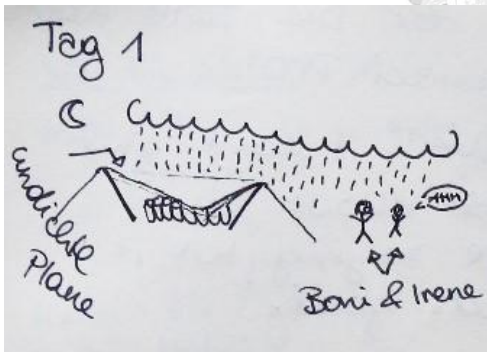 Tag 1
undichte
Plane
AHH
Boni & Irene